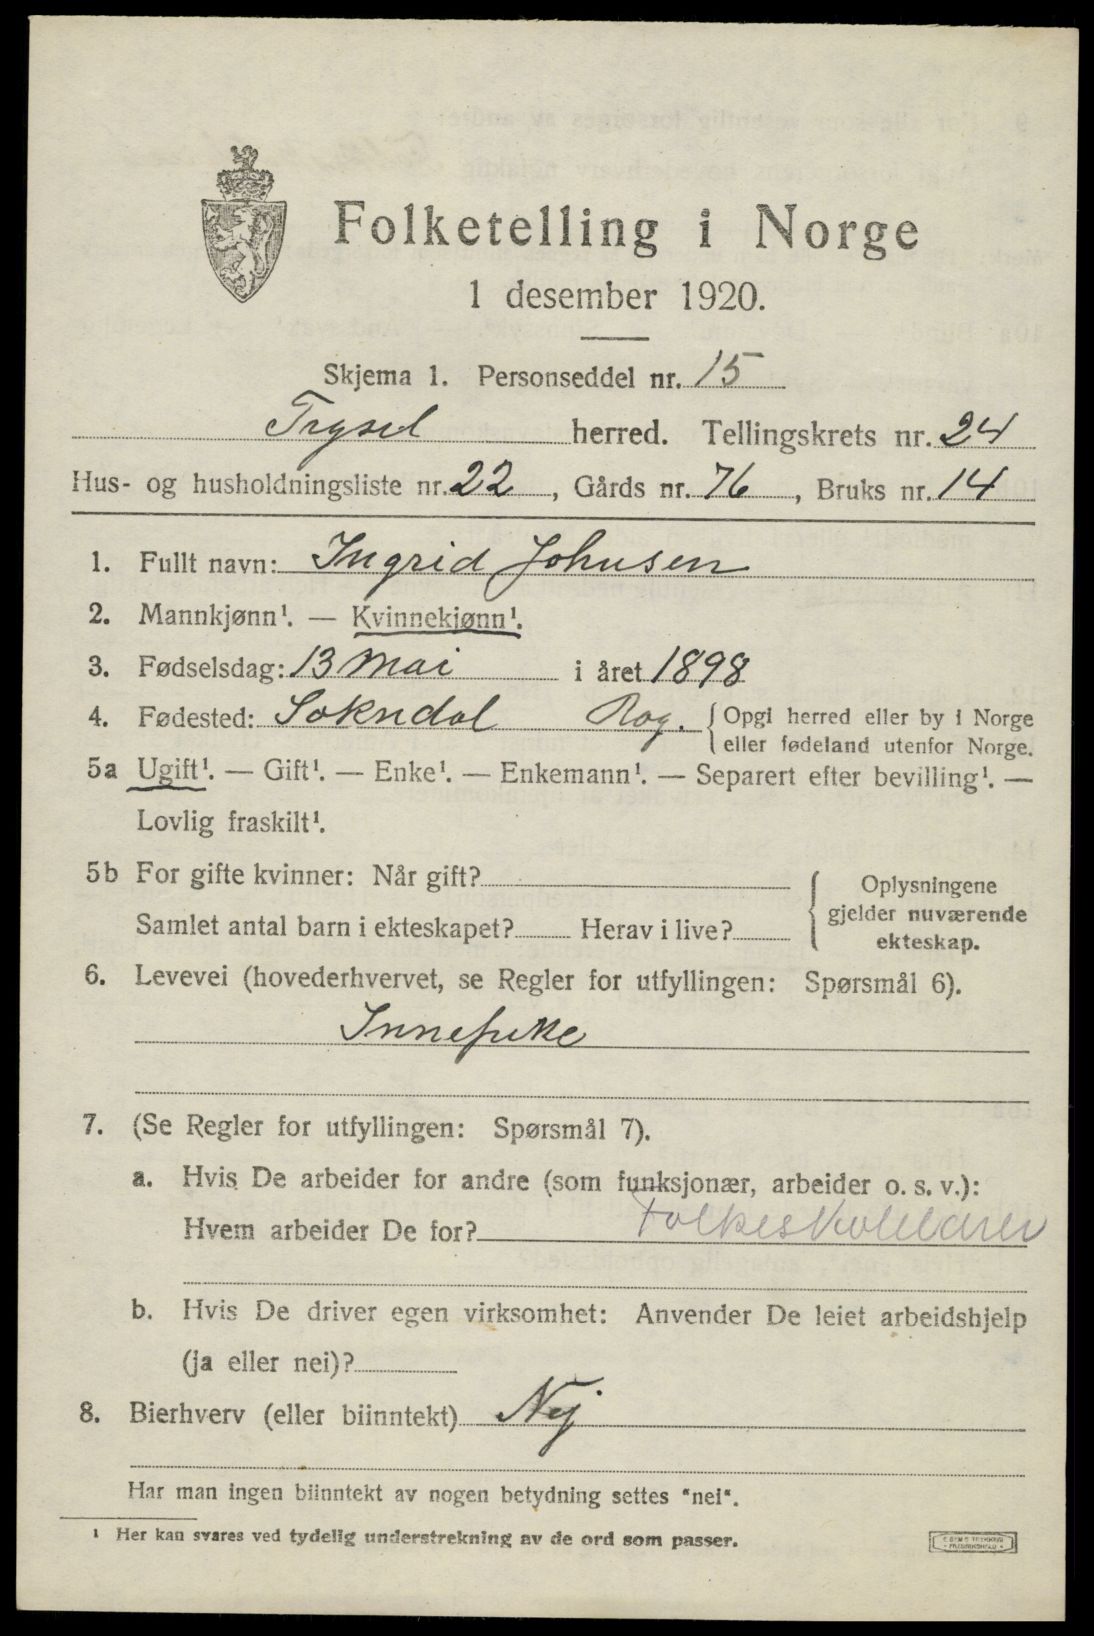 Folketelling i Norge
1 desember 1920.
Skjema 1. Personseddel nr. 15
Trysil herred. Tellingskrets nr. 24
Hus- og husholdningsliste nr. 22, Gårds nr. 76, Bruks nr. 14
1. Fullt navn: Ingrid Johnsen
2. Mannkjønn¹. — Kvinnekjønn¹.
3. Fødselsdag: 13 Mai i året 1898
4. Fødested: Sokndal Rog. Opgi herred eller by i Norge
eller fødeland utenfor Norge.
5a Ugift¹. — Gift¹. — Enke¹. — Enkemann¹. — Separert efter bevilling¹. —
Lovlig fraskilt¹.
5b For gifte kvinner: Når gift?
Samlet antal barn i ekteskapet? Herav i live?
Oplysningene
gjelder nuværende
ekteskap.
6. Levevei (hovederhvervet, se Regler for utfyllingen: Spørsmål 6).
Innepike
7. (Se Regler for utfyllingen: Spørsmål 7).
a. Hvis De arbeider for andre (som funksjonær, arbeider o. s. v.):
Hvem arbeider De for? Folkeskolelærer
b. Hvis De driver egen virksomhet: Anvender De leiet arbeidshjelp
(ja eller nei)?
8. Bierhverv (eller biinntekt) Nej
Har man ingen biinntekt av nogen betydning settes "nei".
¹ Her kan svares ved tydelig understrekning av de ord som passer.